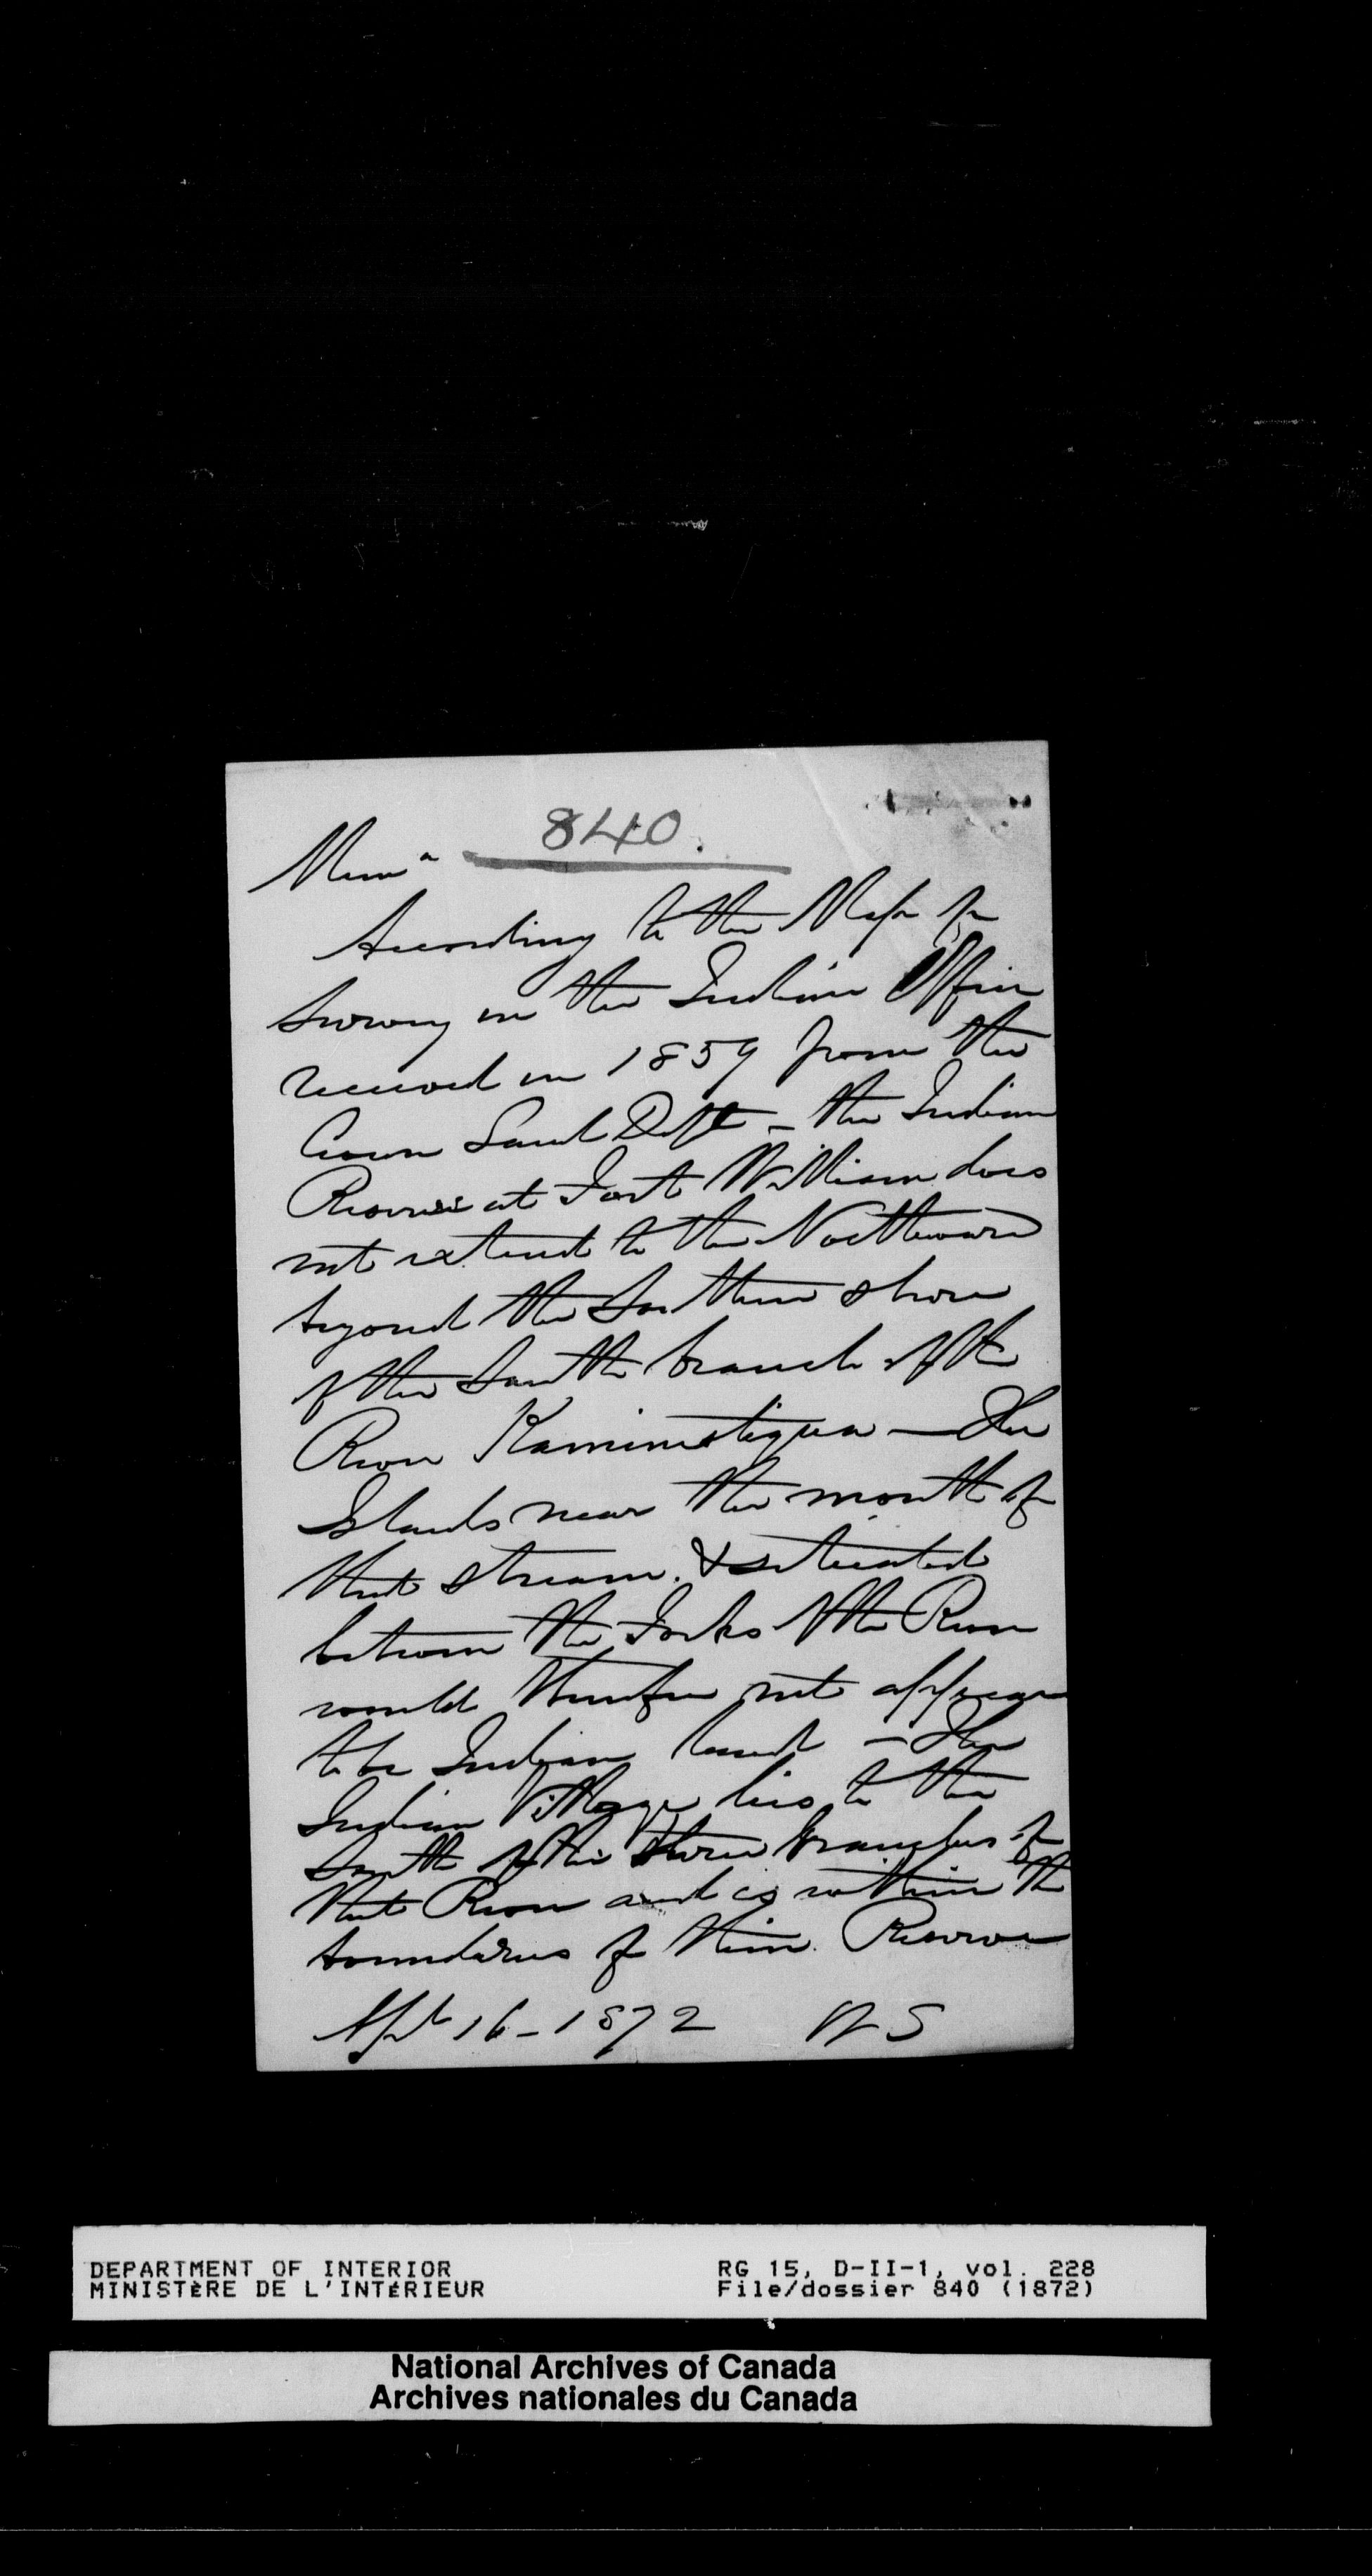 840.
Memo
According to the Map of
Survey in the Indian Office
received in 1859 from the
Crown Land Dept - the Indian
Reserve at Fort William does
not extend to the Northward
beyond the Southern shore
of the South branch of the
River Kaministiqua - The
Islands near the mouth of
that stream & situated
between the Forks of the River
would therefore not appear
to be Indian land - The
Indian Village lies to the
South of the three branches of
that River and is within the
boundaries of their Reserve
Apl 16 - 1872 WS
DEPARTMENT OF INTERIOR
MINISTÈRE DE L'INTÉRIEUR
RG 15, D-II-1, vol. 228
File/dossier 840 (1872)
National Archives of Canada
Archives nationales du Canada